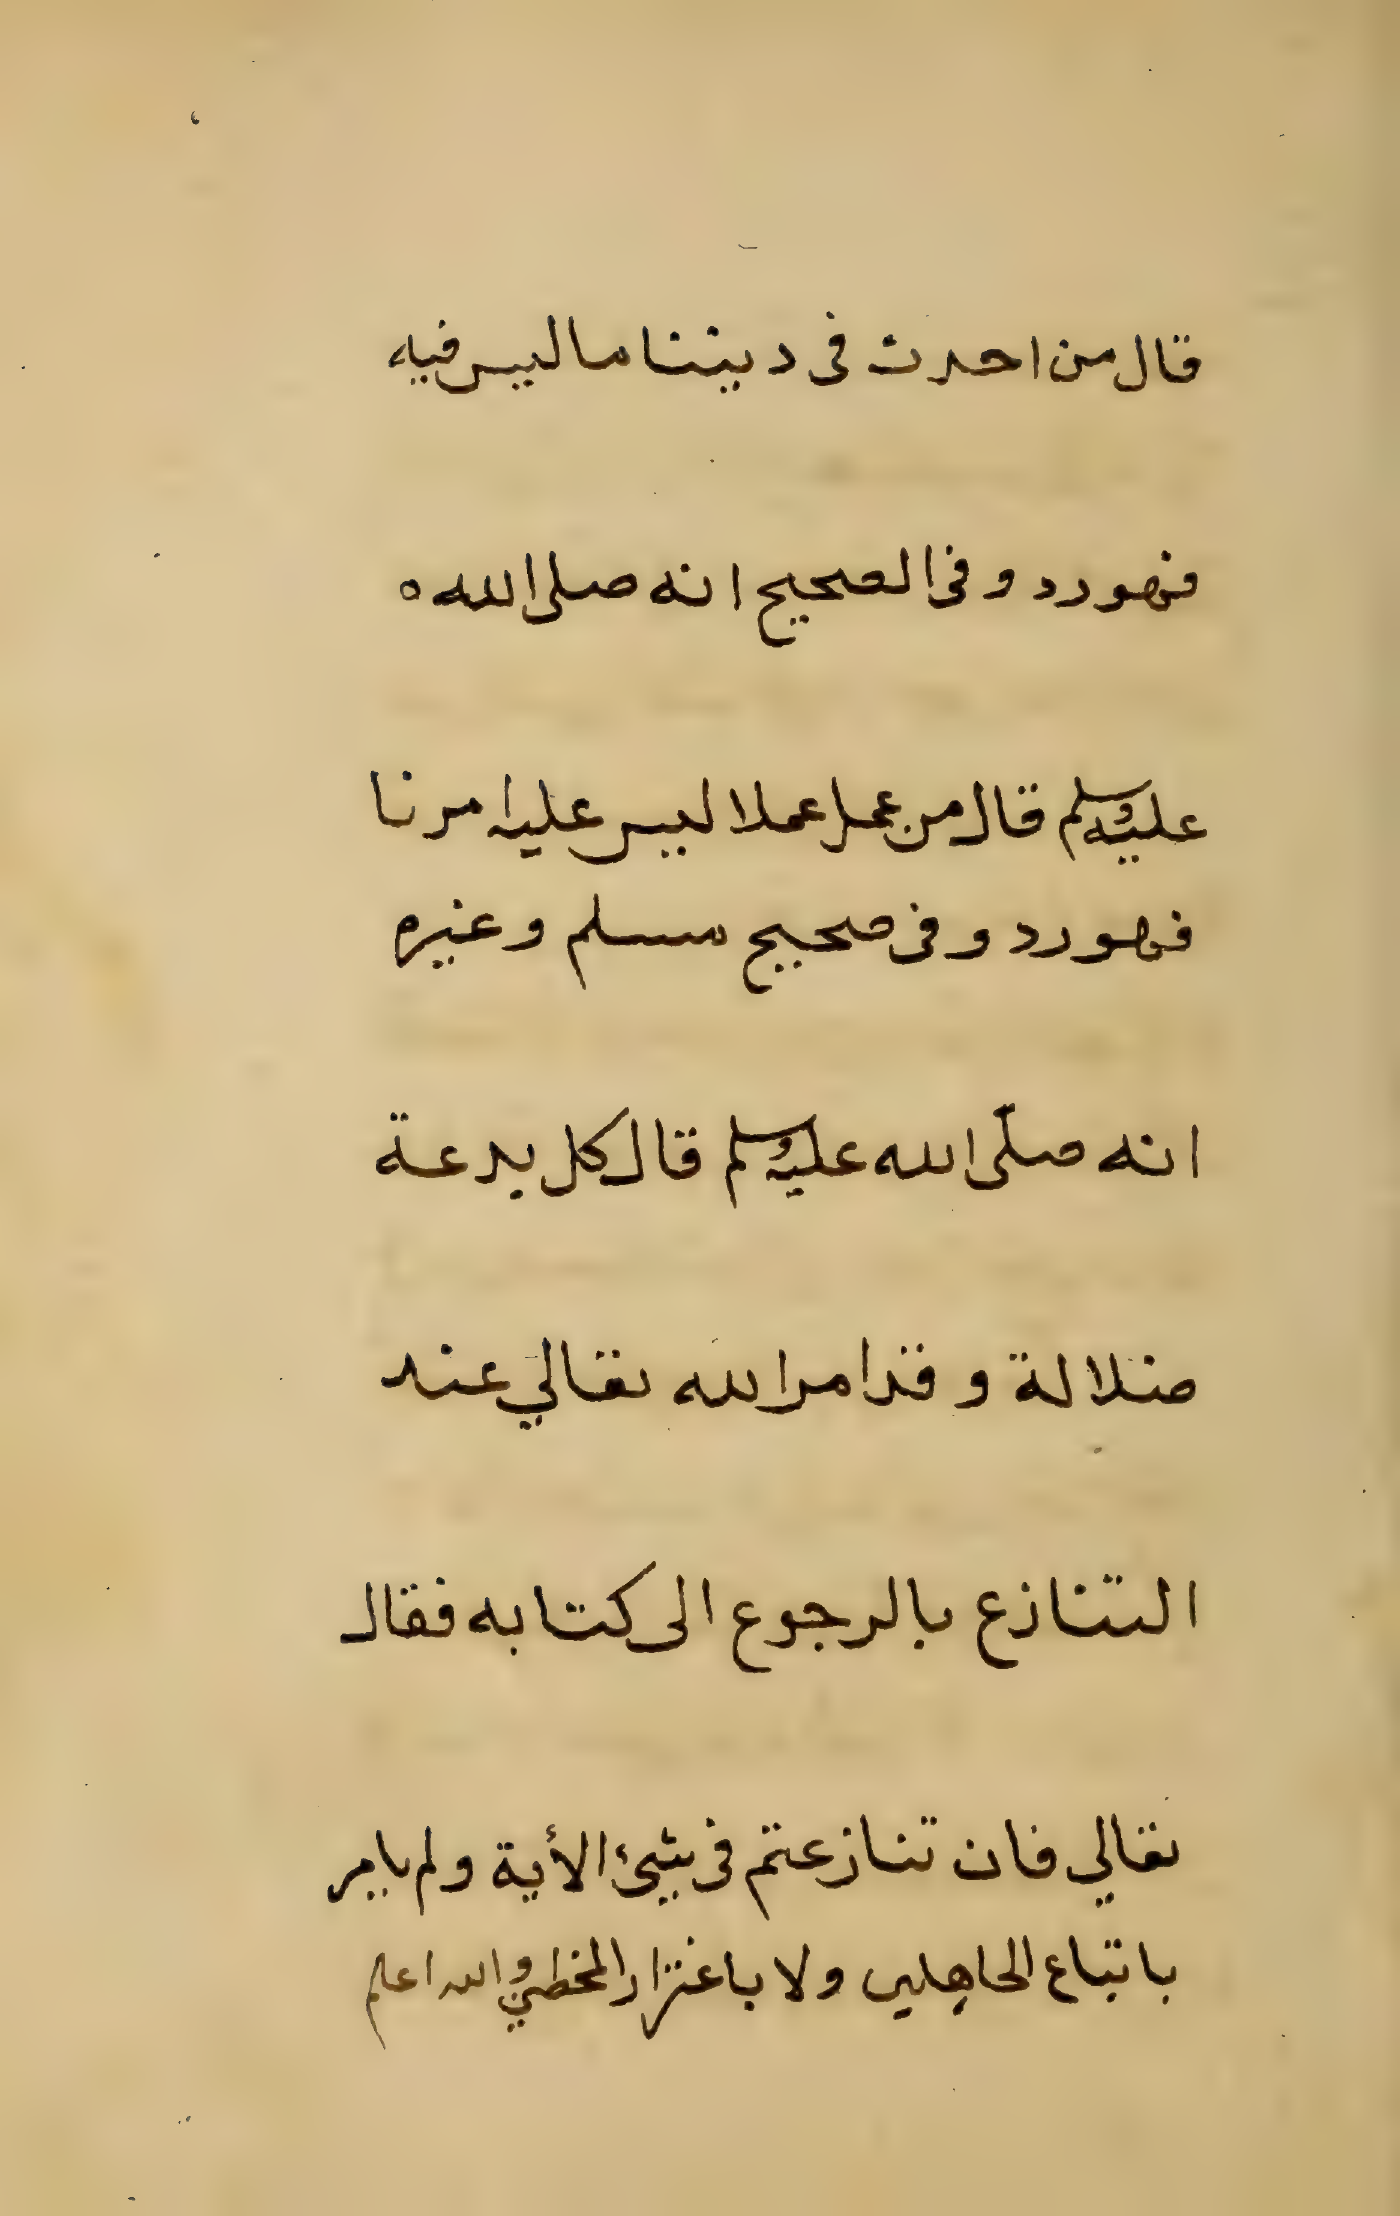 قال من احدث فى ديننا ما ليس فيه
فهو رد و فى الصحيح انه صلى الله ه
عليه وسلم قال من عمل عملا ليس عليه امرنا
فهو رد و فى صحيح مسلم و غيره
انه صلّى الله عليه وسلم قال كل بدعة
ضلالة و قد امر الله تعالي عند
التنازع بالرجوع الى كتابه فقال
تعالي فان تنازعتم فى شيئ الأية ولم يامر
باتباع الجاهلين ولا باغترار المخطئ والله اعلم